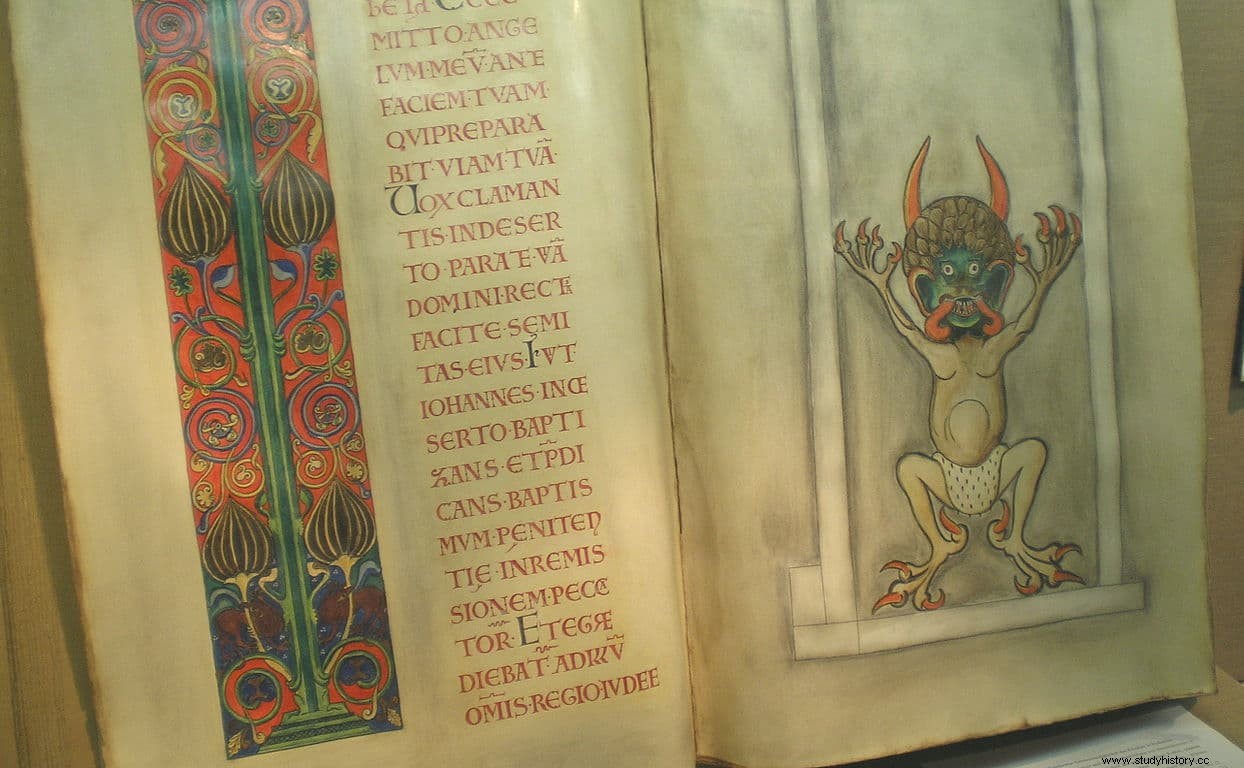 MITTO·ANGE
LVM·MEV̄·ANTE
FACIEM·TVAM·
QVIPREPARA
BIT·VIAM·TVĀ·
VOX CLAMAN
TIS·INDESER
TO·PARATE·VIĀ
DOMINI·RECTA
FACITE·SEMI
TAS·EIVS·FVIT
IOHANNES·INDE
SERTO·BAPTI
ZANS·ET P̄DI
CANS·BAPTIS
MVM·PENITEN
TIE·INREMIS
SIONEM·PECCA
TOR·ET EGRE
DIEBAT·AD
OM̄IS·REGIO·IVDEE
www.studyhistory.cc